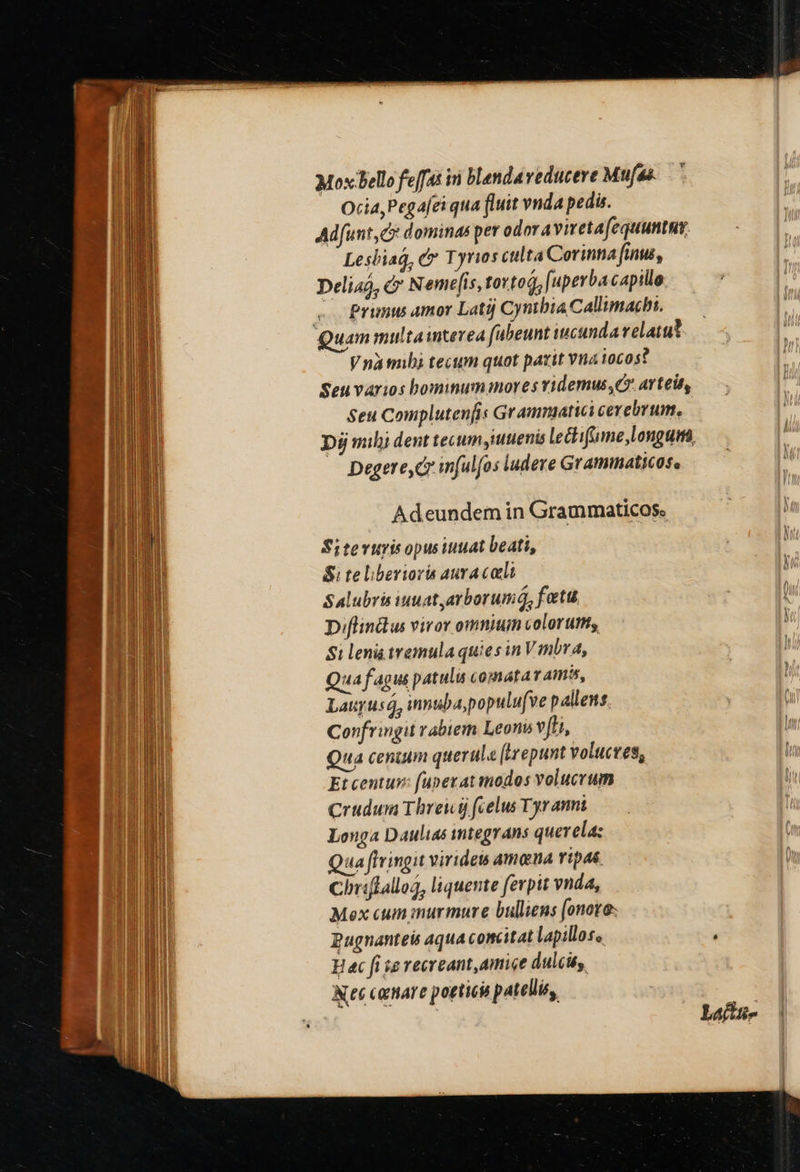 Mox bello feſſas in blanda reducere Muſas
Ocia, Pegaſei qua fluit vnda pedis.
Adſunt, & dominas per odora vireta ſequuntur.
Lesbiaq́, & Tyrios culta Corinna ſinus,
Deliaq́, & Nemeſis, tortoq́, ſuperba capillo
Primus amor Latij Cynthia Callimachi.
Quam multa interea ſubeunt iucunda relatu?
Vnà mihi tecum quot parit vna iocos?
Seu varios hominum mores ridemus, & arteis,
Seu Complutenſis Grammatici cerebrum.
Dij mihi dent tecum, iuuenis lectiſſime, longum,
Degere, & inſulſos ludere Grammaticos.
Ad eundem in Grammaticos.
Si te ruris opus iuuat beati,
Si te liberioris aura cœli
Salubris iuuat, arborumq́, fœtu
Diſtinctus viror omnium colorum,
Si lenis tremula quies in Vmbra,
Qua fagus patulis comata ramis,
Laurusq́, innuba, populuſve pallens
Confringit rabiem Leonis vſti,
Qua centum querulæ ſtrepunt volucres,
Et centum ſuperat modos volucrum
Crudum Threicij ſcelus Tyranni
Longa Daulias integrans querelas
Qua ſtringit virideis amœna ripas
Chriſtalloq́, liquente ſerpit vnda,
Mox cum murmure bulliens ſonoro
Pugnanteis aqua concitat lapillos.
Hæc ſi te recreant, amice dulcis,
Nec cœnare poeticis patellis,
Lactu-